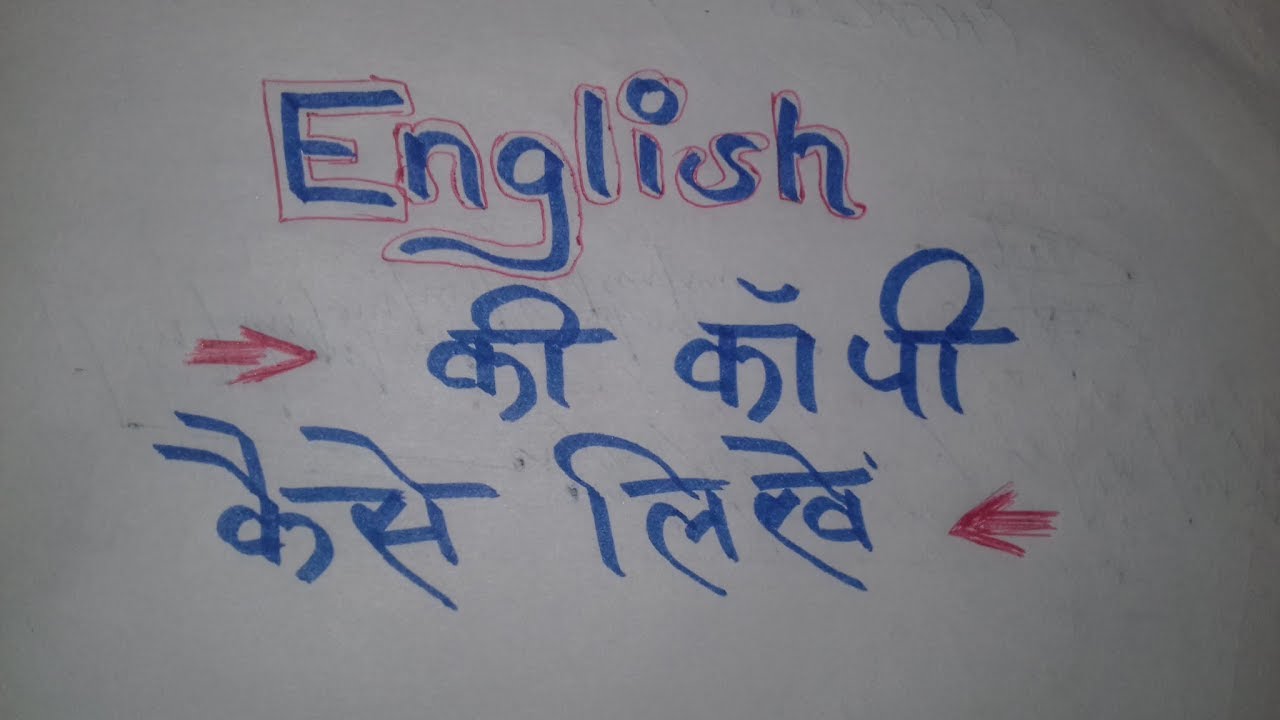 English
की कॉपी
कैसे लिखें